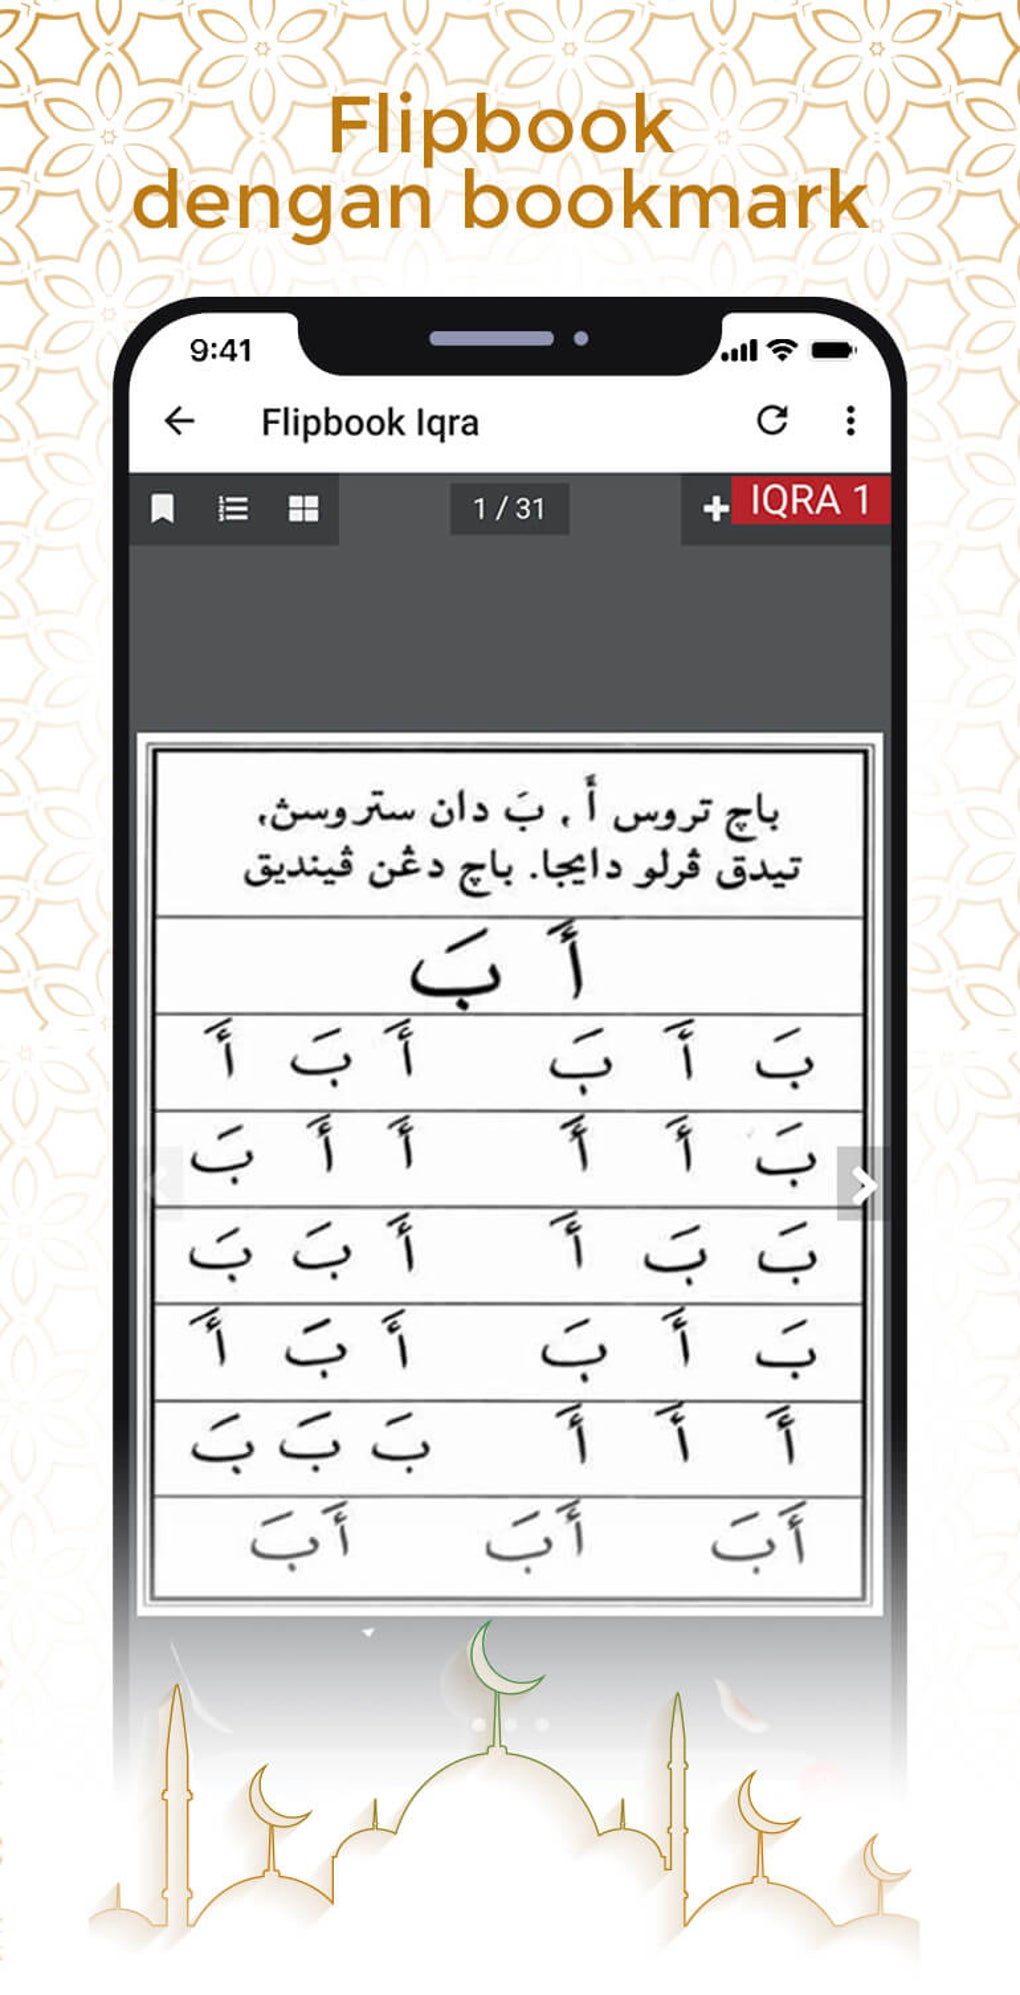 Flipbook
dengan bookmark
9:41
Flipbook Iqra
1 / 31
IQRA 1
باچ تروس أَ , بَ دان ستروسڽ,
تيدق ڤرلو دايجا. باچ دڠن ڤينديق
أَ بَ
بَ أَ بَ أَ بَ أَ
بَ أَ أَ أَ أَ بَ
بَ بَ أَ أَ بَ بَ
بَ أَ بَ أَ بَ أَ
أَ أَ أَ بَ بَ بَ
أَبَ أَبَ أَبَ